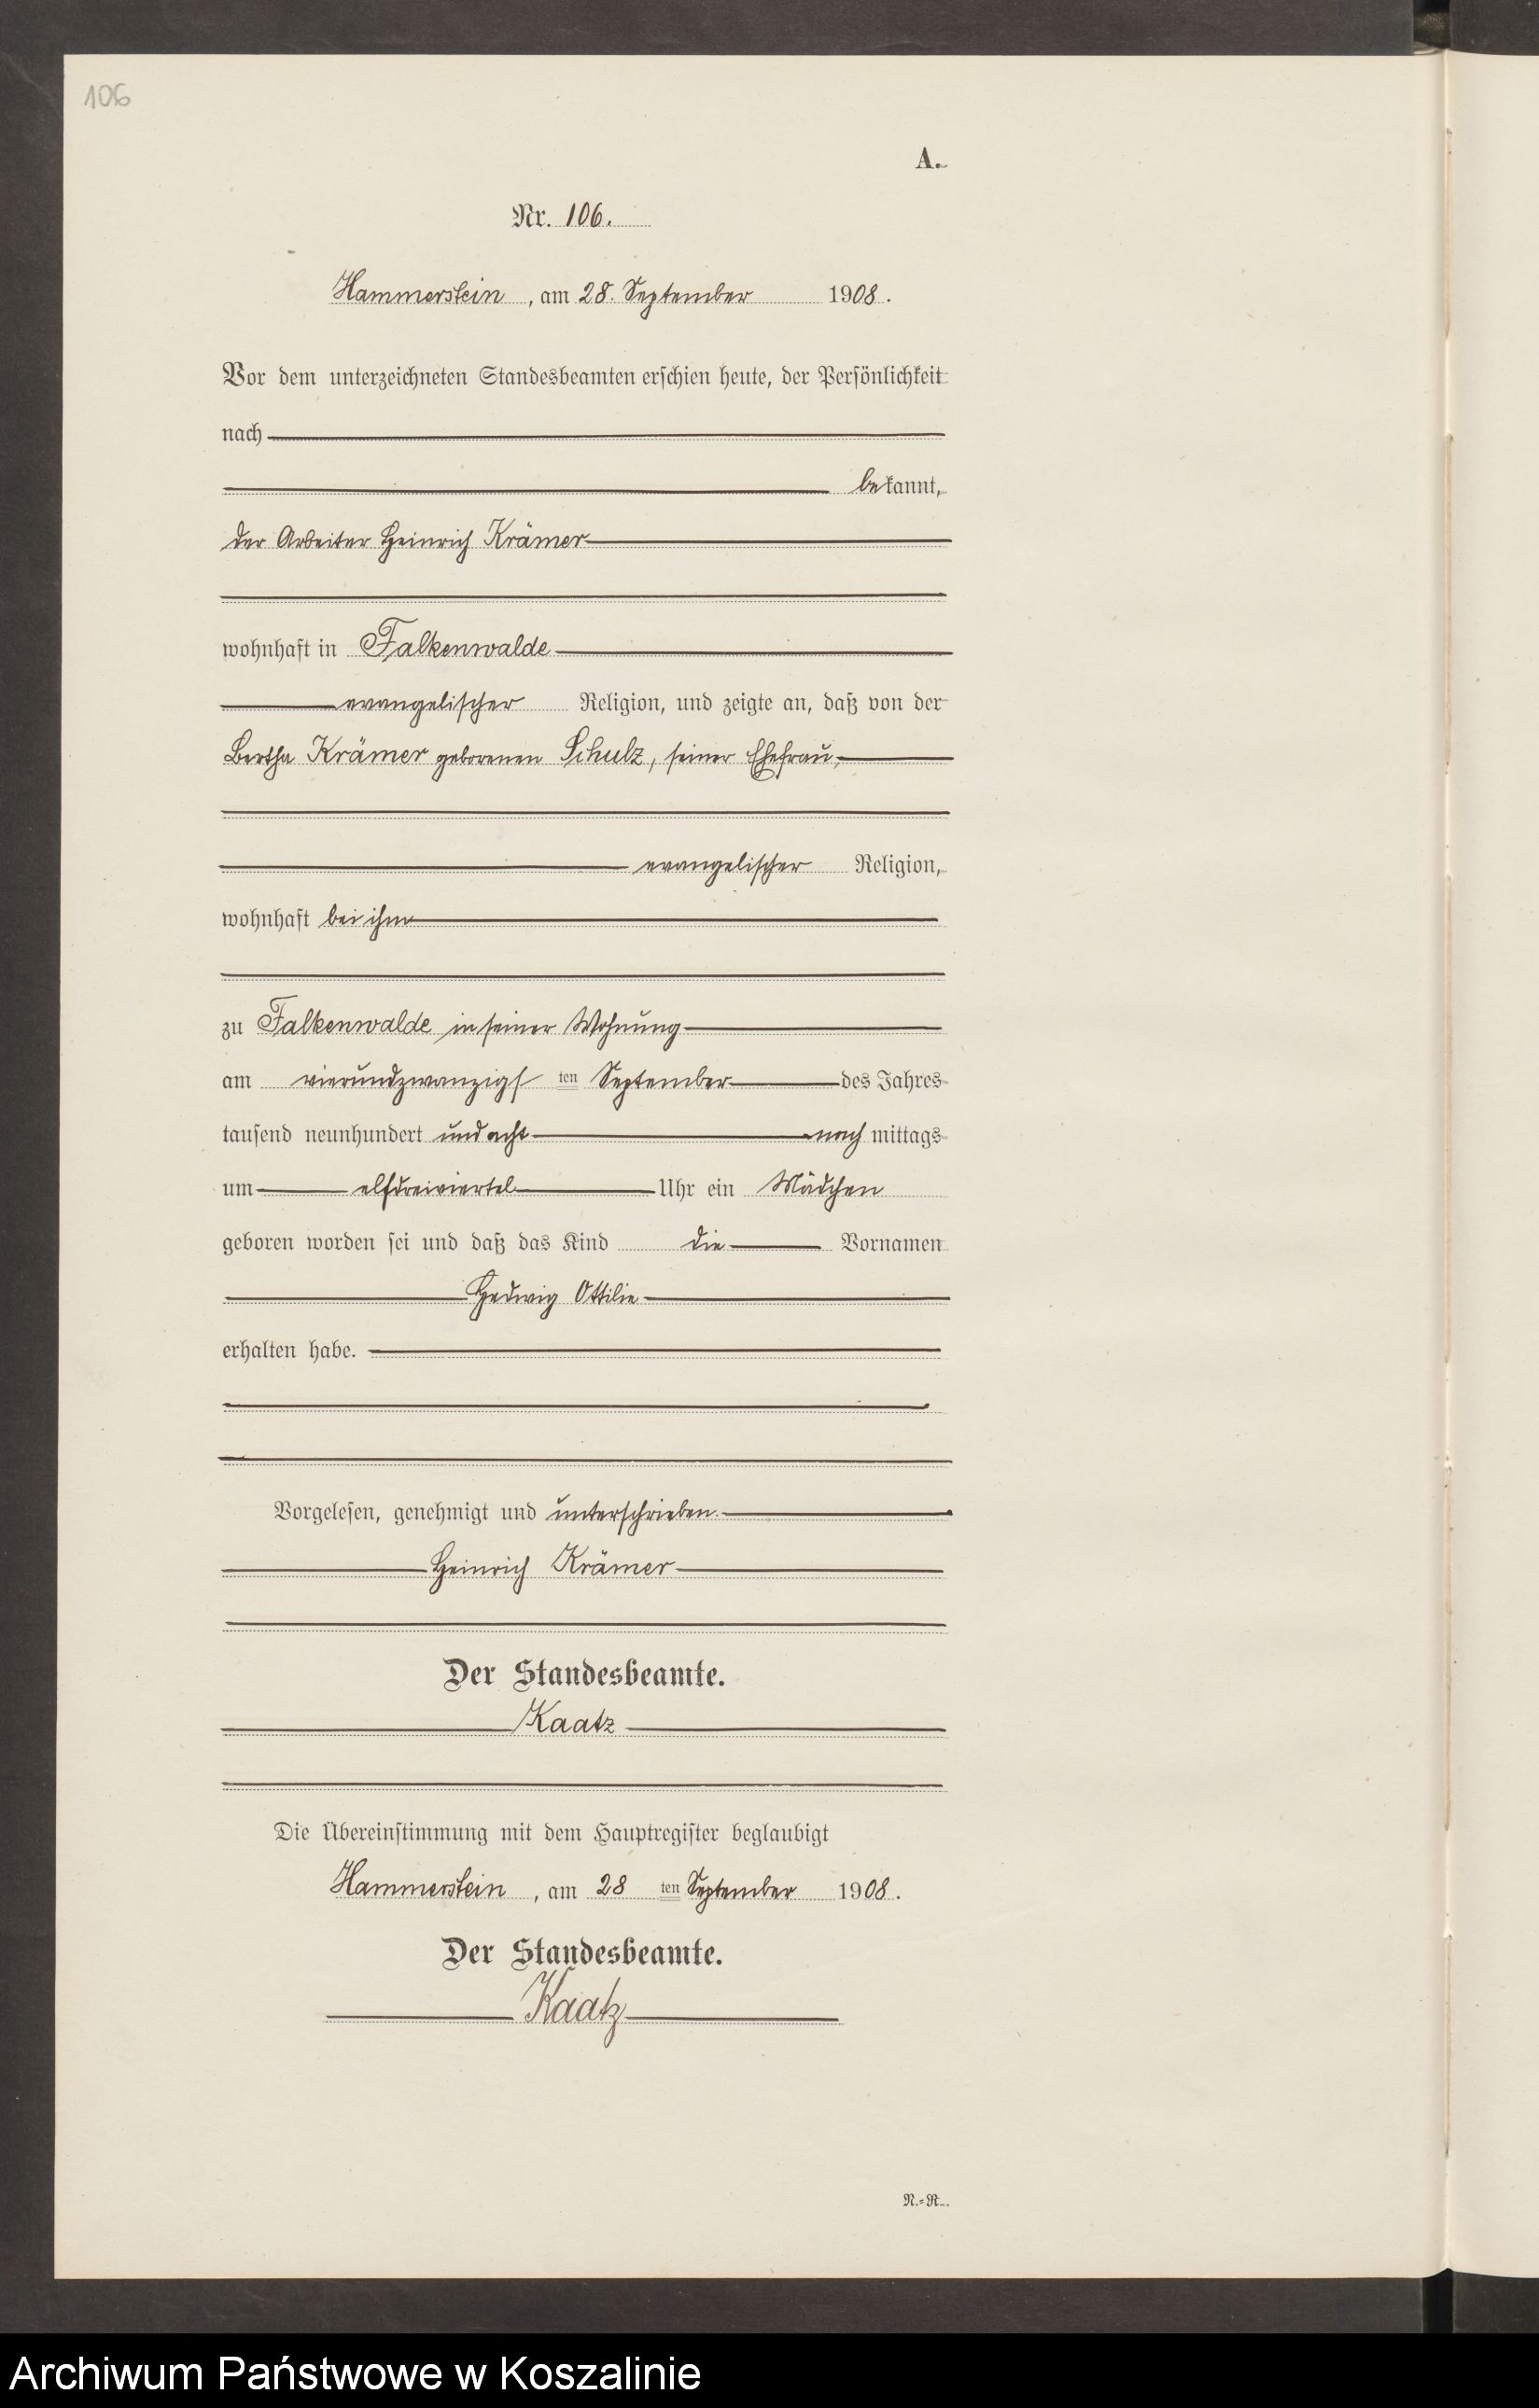 106
A.
Nr. 106.
Hammerstein, am 28. September 1908.
Vor dem unterzeichneten Standesbeamten erschien heute, der Persönlichkeit
nach
bekannt,
der Arbeiter Heinrich Krämer
wohnhaft in Falkenwalde
evangelischer Religion, und zeigte an, daß von der
Bertha Krämer geborenen Schulz, seiner Ehefrau,
evangelischer Religion,
wohnhaft bei ihm
zu Falkenwalde in seiner Wohnung
am vierundzwanzigsten September des Jahres
tausend neunhundert und acht nachmittags
um elfdreiviertel Uhr ein Mädchen
geboren worden sei und daß das Kind die Vornamen
Hedwig Ottilie
erhalten habe.
Vorgelesen, genehmigt und unterschrieben.
Heinrich Krämer
Der Standesbeamte.
Kaatz
Die Übereinstimmung mit dem Hauptregister beglaubigt
Hammerstein, am 28 ten September 1908.
Der Standesbeamte.
Kaatz
N.=R.
Archiwum Państwowe w Koszalinie